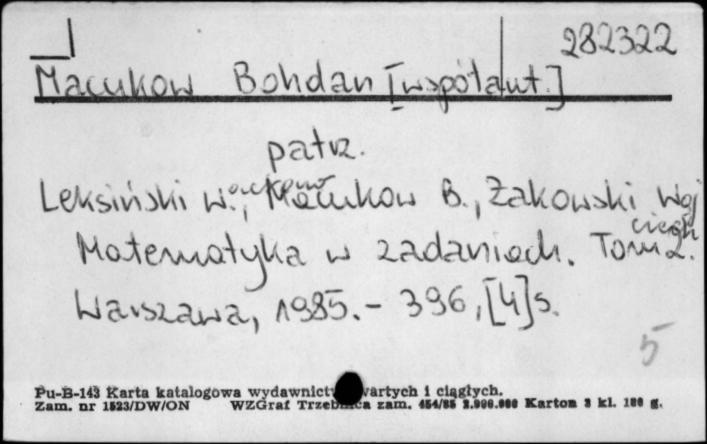 282322
Macukow Bohdan [współaut.]
patrz.
Leksiński W., Macukow B., Żakowski Wojciech
Matematyka w zadaniach. Tom 2.
Warszawa, 1985. - 396, [4] s.
5
Pu-B-143 Karta katalogowa wydawnictw zwartych i ciągłych.
Zam. nr 1523/DW/ON WZGraf Trzebnica zam. 454/85 2.000.000 Karton 3 kl. 180 g.